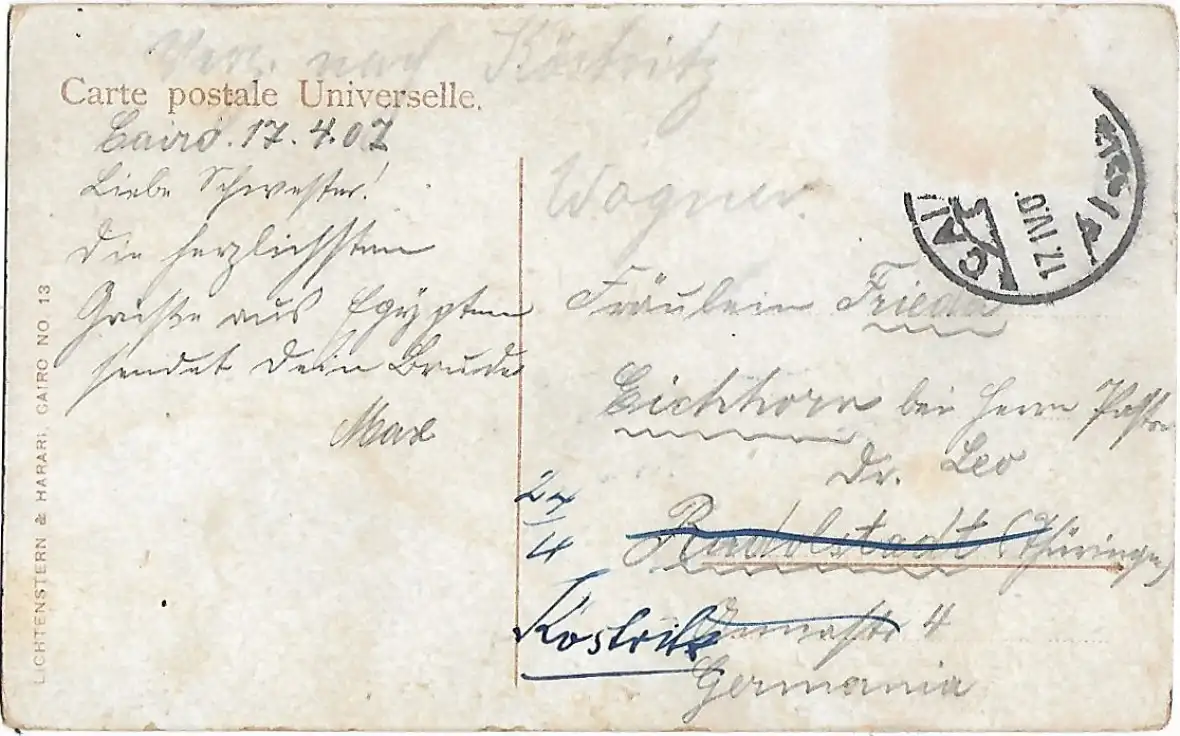 Verz. nach Köstritz
Carte postale Universelle.
Cairo. 17.4.07
Liebe Schwester!
Die herzlichsten
Grüße aus Egypten
sendet Dein Bruder
Max
LICHTENSTERN & HARARI, CAIRO NO 13
Wagner.
Fräulein Frieda
Eichhorn bei Herrn Pastor
Dr. Leo
Rudolstadt (Thüringen)
4
Germania
27
4
Köstritz
17.IV.0.